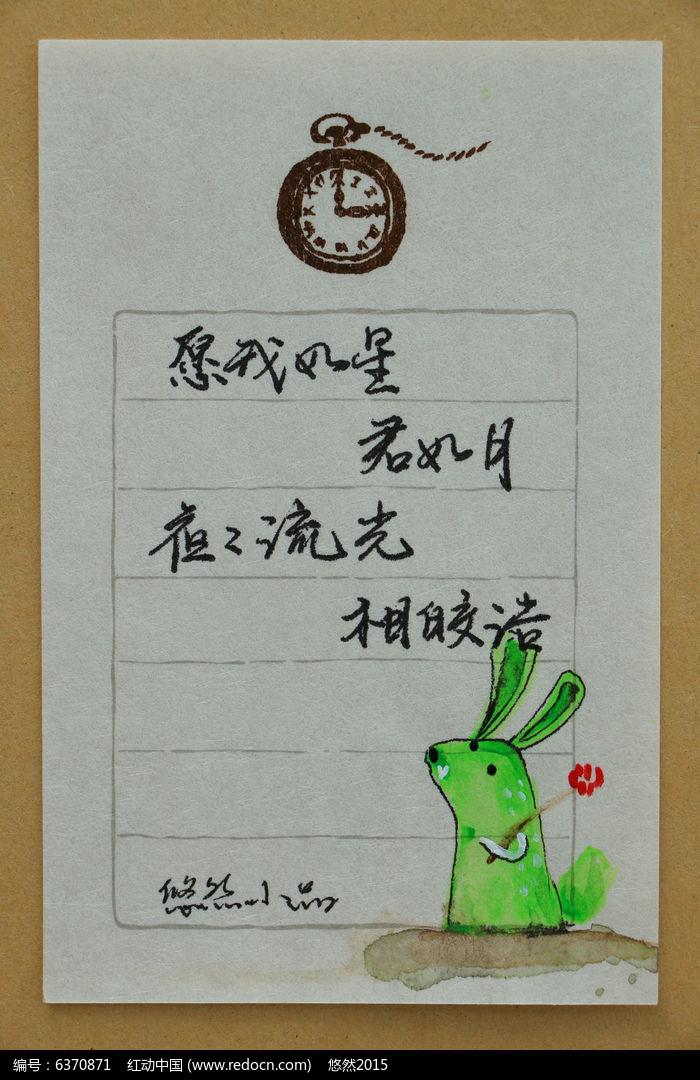 愿我如星
君如月
夜々流光
相皎洁
悠然小品
编号：6370871 红动中国 (www.redocn.com) 悠然2015